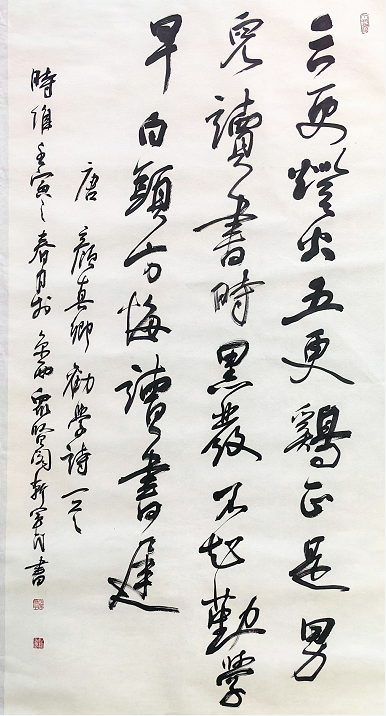 三更燈火五更鷄正是男
兒讀書時黑發不知勤學
早白頭方悔讀書遲
唐 顏真卿 勸學詩一首
時維壬寅之春月於京西聚賢閣書